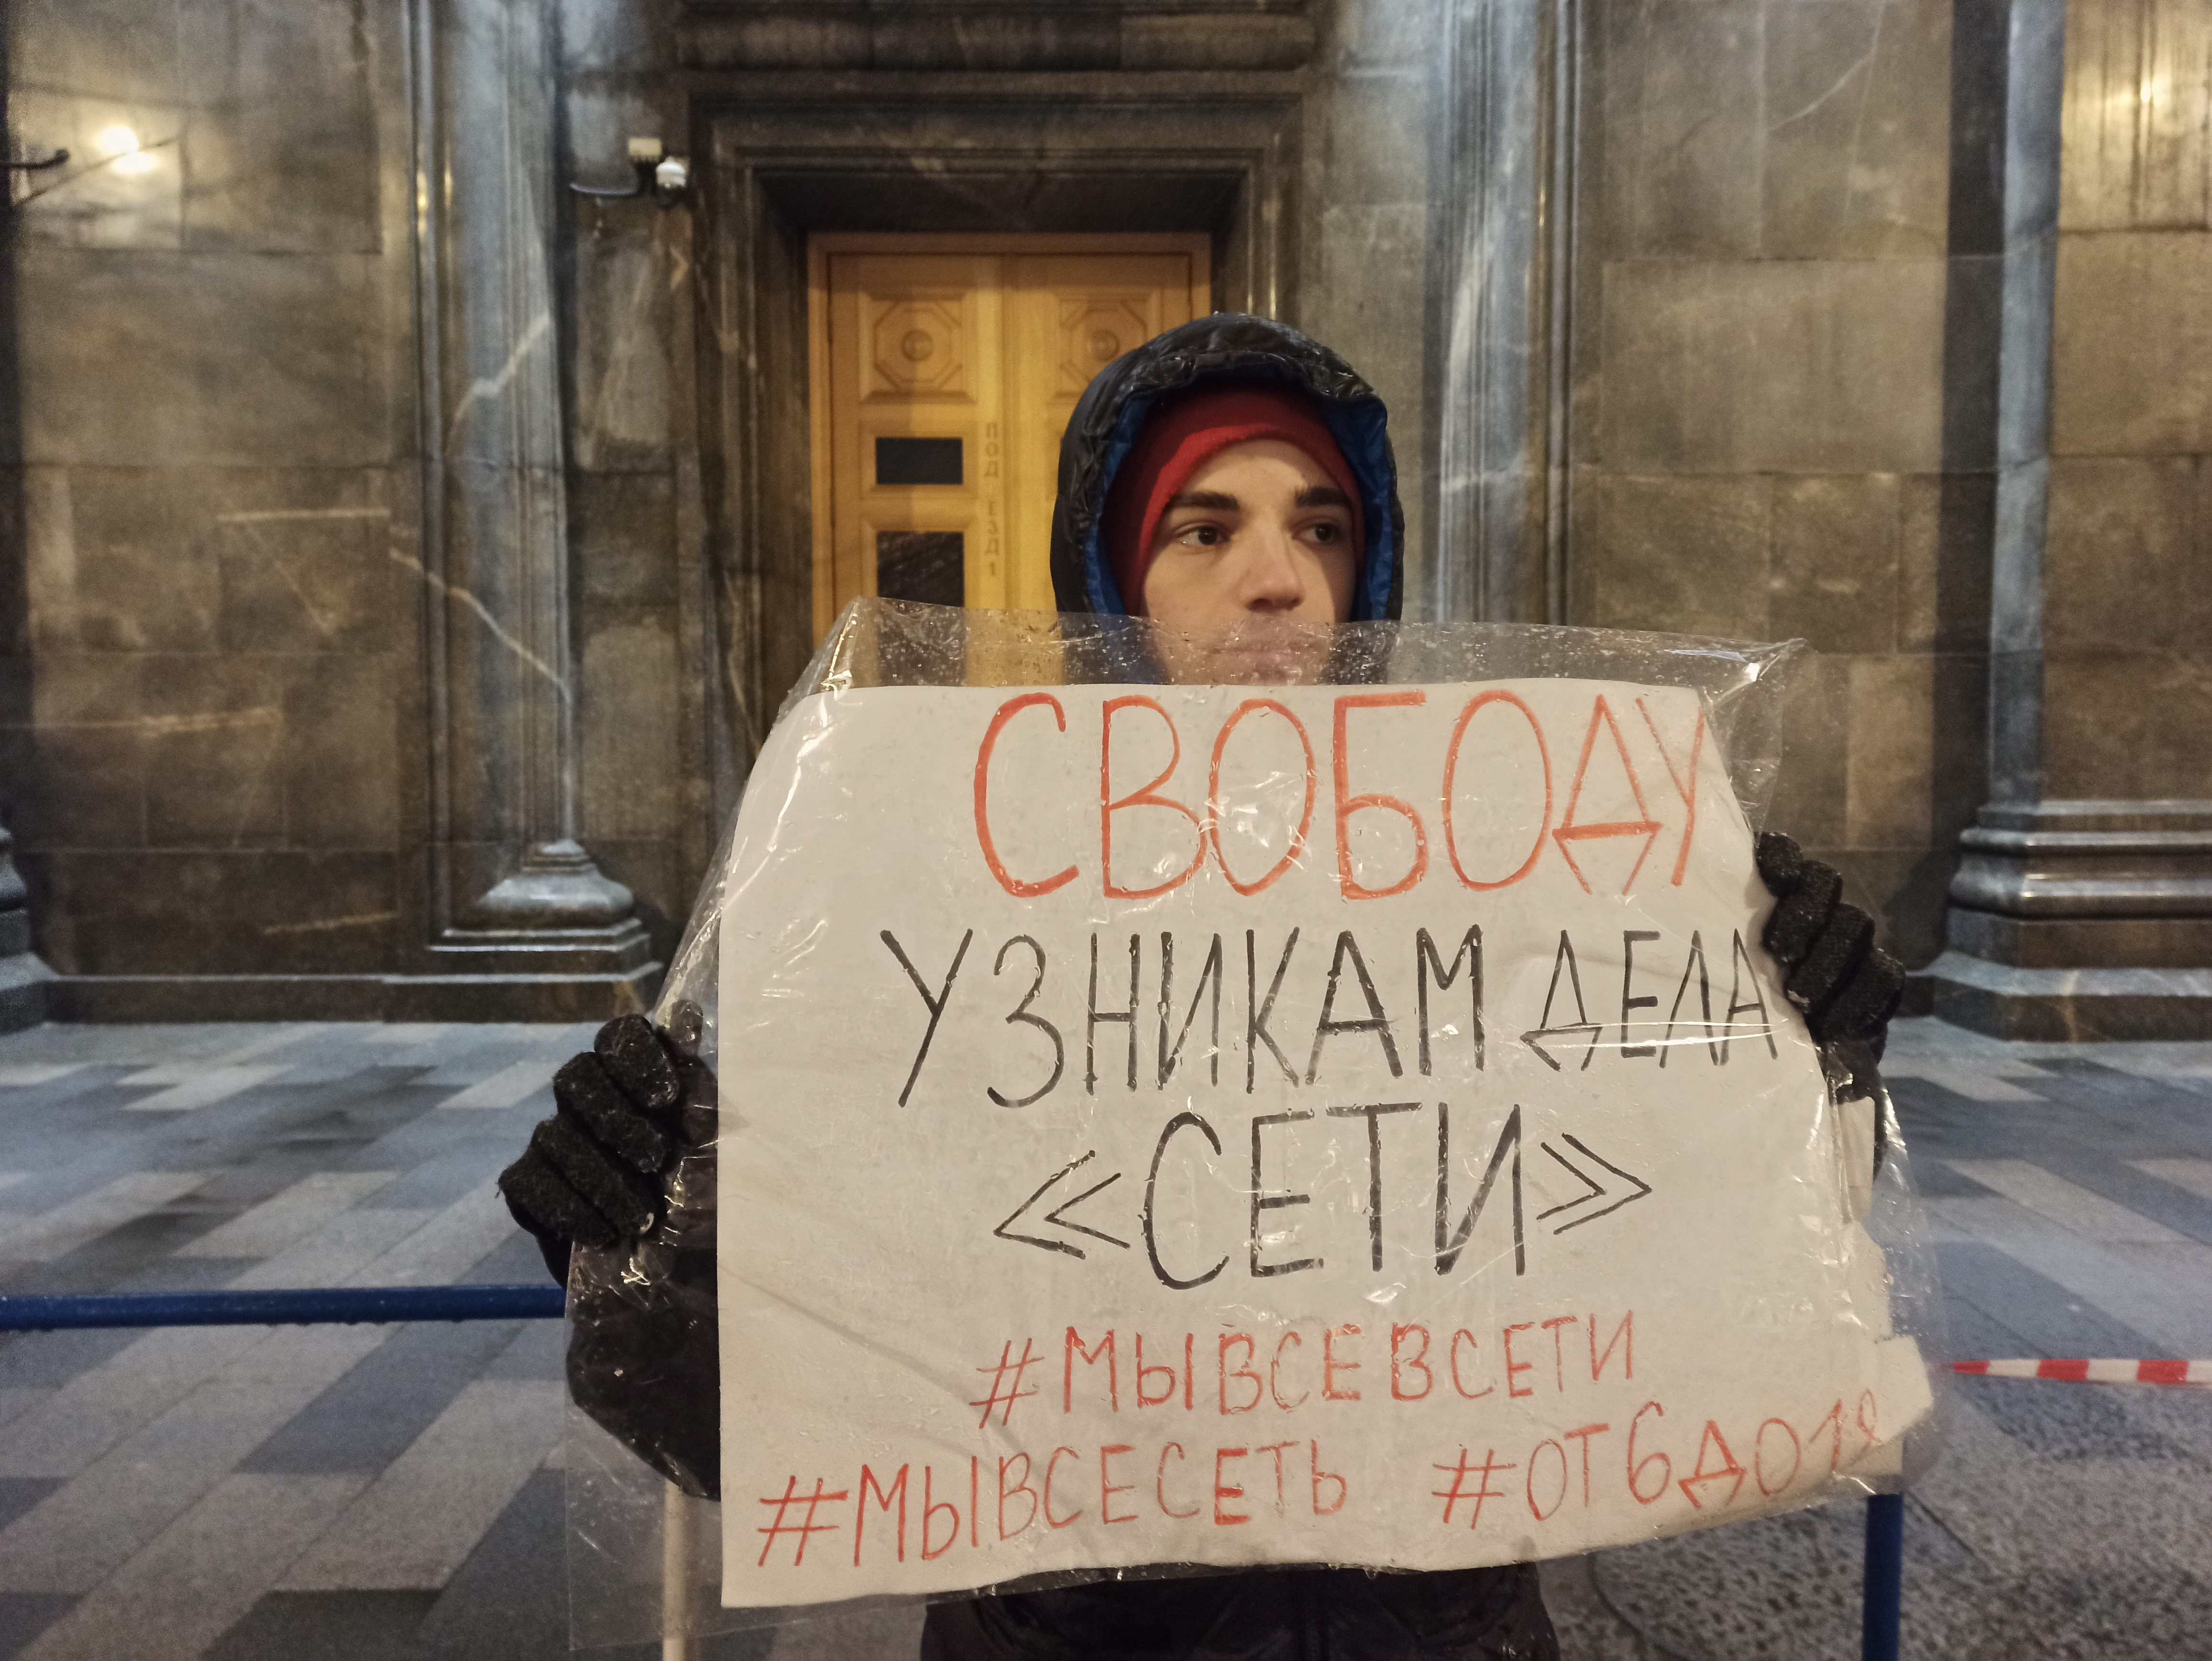 ПОДЪЕЗД 1
СВОБОДУ
УЗНИКАМ ДЕЛА
«СЕТИ»
#МЫВСЕВСЕТИ
#МЫВСЕСЕТЬ #ОТ6ДО18